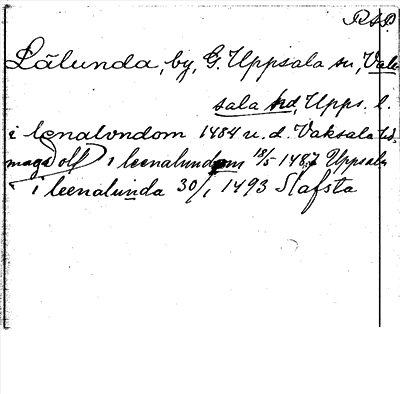 RAP.
Lälunda, by, G. Uppsala sn, Vak-
sala hd, Upps. l.
i lenalvndom 1484 u. d. Vaksala hd.
i leenalundom 18/5 1487 Uppsala
i leenalunda 30/1 1493 Slafsta